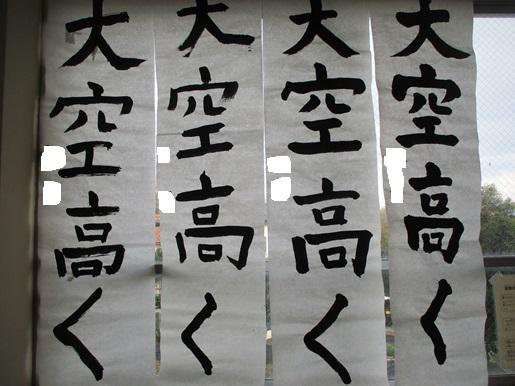 大空高く
大空高く
大空高く
大空高く